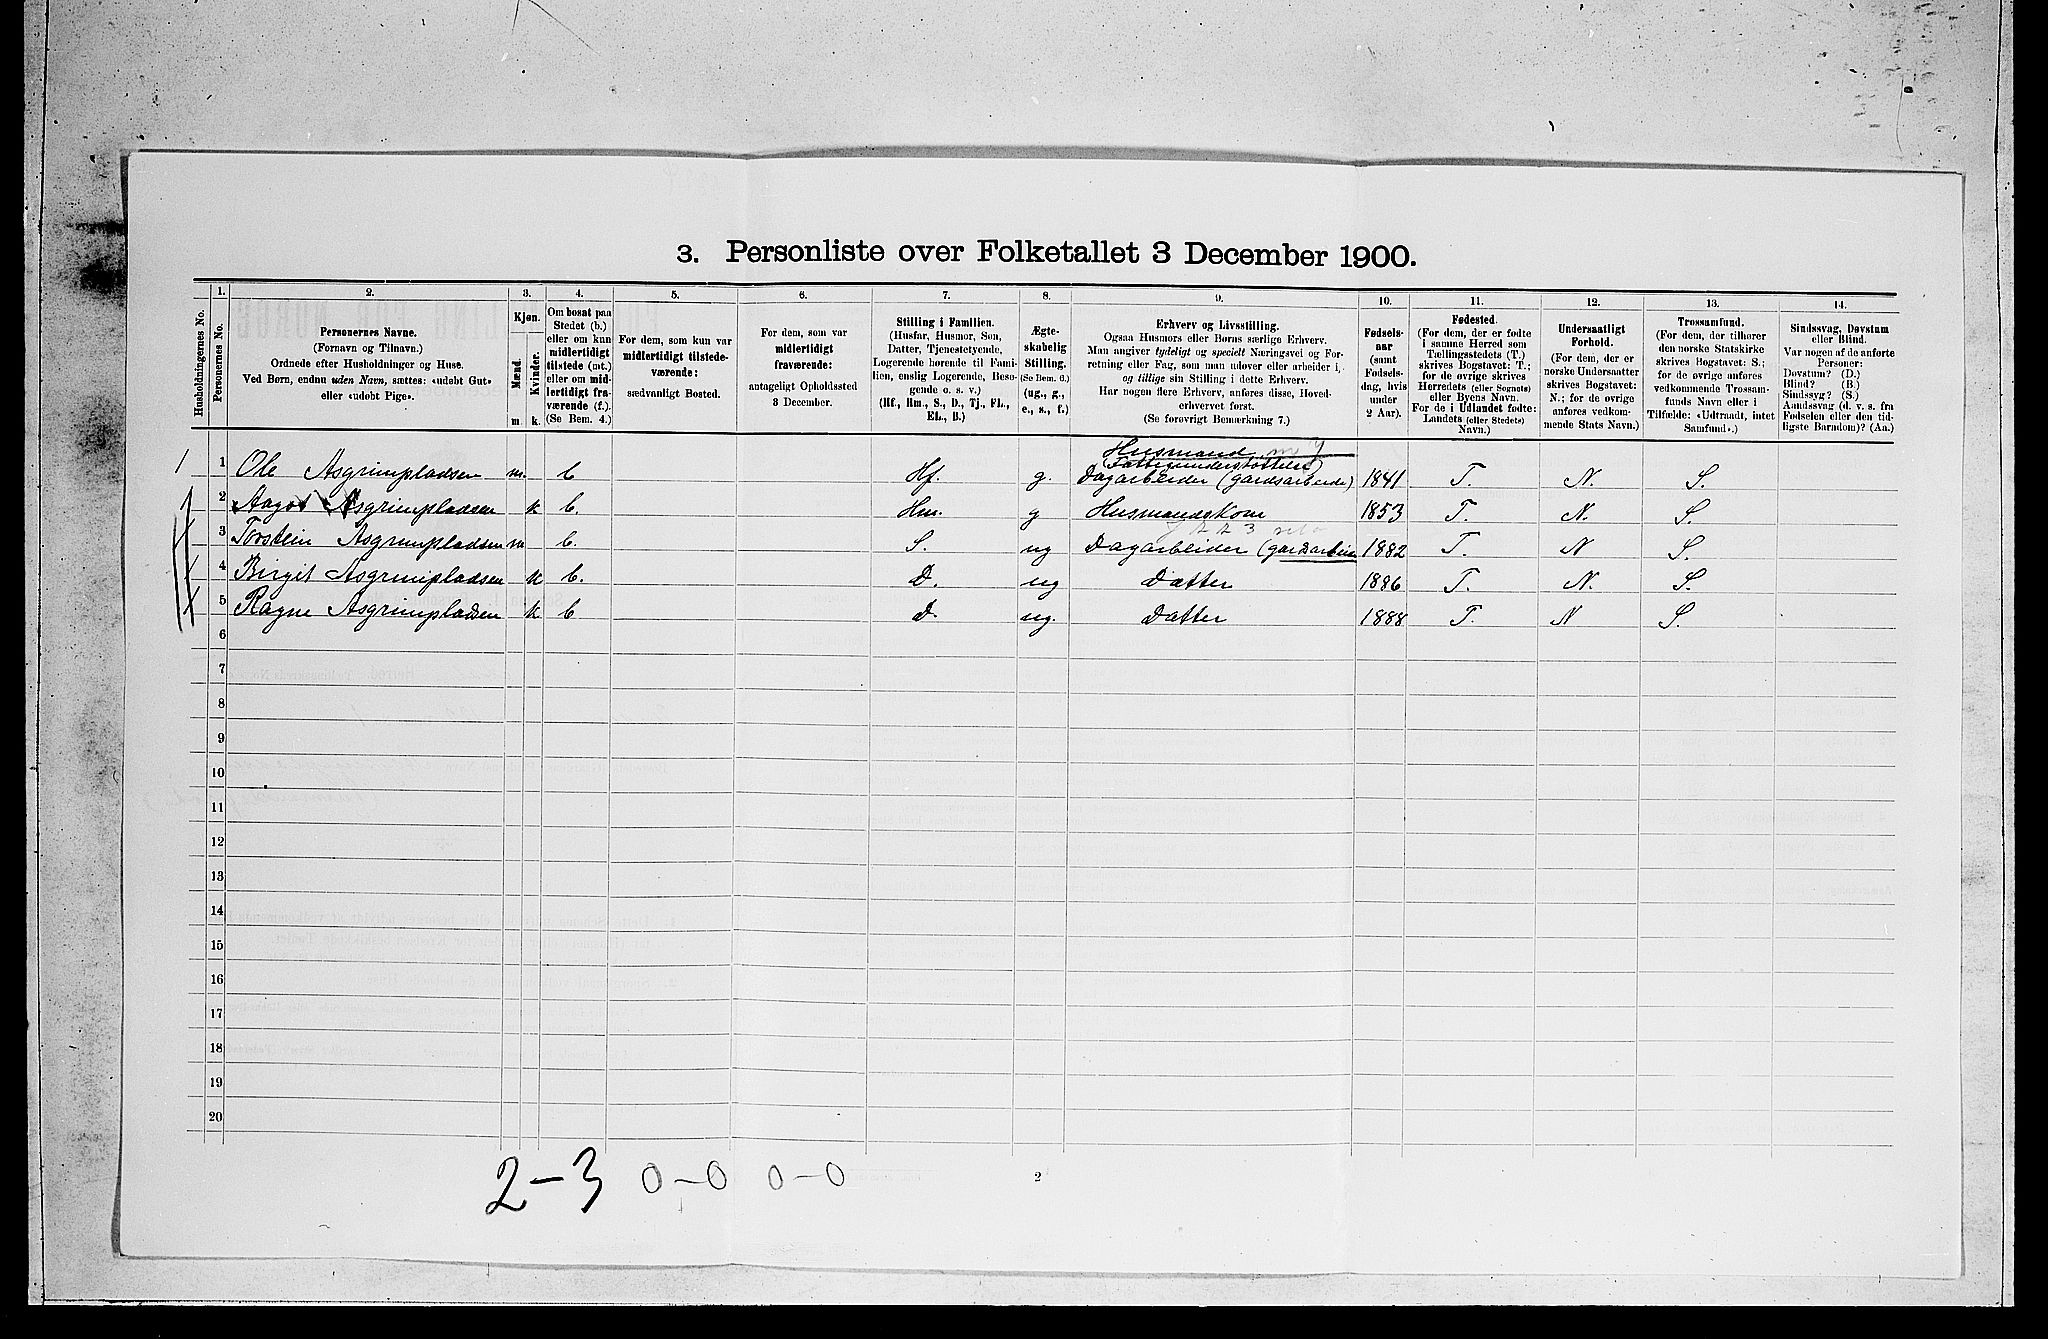 3. Personliste over Folketallet 3 December 1900.
Husholdningernes No.
1.
Personernes No.
2.
Personernes Navne.
(Fornavn og Tilnavn.)
Ordnede efter Husholdninger og Huse.
Ved Børn, endnu uden Navn, sættes: «udøbt Gut»
eller «udøbt Pige».
3.
Kjøn.
Mænd.
Kvinder.
m. k.
4.
Om bosat paa
Stedet (b.)
eller om kun
midlertidigt
tilstede (mt.)
eller om mid-
lertidigt fra-
værende (f.).
(Se Bem. 4.)
5.
For dem, som kun var
midlertidigt tilstede-
værende:
sædvanligt Bosted.
6.
For dem, som var
midlertidigt
fraværende:
antageligt Opholdssted
3 December.
7.
Stilling i Familien.
(Husfar, Husmor, Søn,
Datter, Tjenestetyende,
Logerende hørende til Fami-
lien, enslig Logerende, Besø-
gende o. s. v.)
(Hf., Hm., S., D., Tj., FL.,
EL., B.)
8.
Ægte-
skabelig
Stilling.
(Se Bem. 6.)
(ug., g.,
e., s., f.)
9.
Erhverv og Livsstilling.
Ogsaa Husmors eller Børns særlige Erhverv.
Man angiver tydeligt og specielt Næringsvei og For-
retning eller Fag, som man udøver eller arbeider i,
og tillige sin Stilling i dette Erhverv.
Har nogen flere Erhverv, anføres disse, Hoved-
erhvervet først.
(Se forøvrigt Bemerkning 7.)
10.
Fødsels-
aar
(samt
Fødsels-
dag, hvis
under
2 Aar).
11.
Fødested.
(For dem, der er fødte
i samme Herred som
Tællingsstedets (T.)
skrives Bogstavet: T.;
for de øvrige skrives
Herredets (eller Sognets)
eller Byens Navn.
For de i Udlandet fødte:
Landets (eller Stedets)
Navn.)
12.
Undersaatligt
Forhold.
(For dem, der er
norske Undersaatter
skrives Bogstavet:
N.; for de øvrige
anføres vedkom-
mende Stats Navn.)
13.
Trossamfund.
(For dem, der tilhører
den norske Statskirke
skrives Bogstavet: S.;
for de øvrige anføres
vedkommende Trossam-
funds Navn eller i
Tilfælde: «Udtraadt, intet
Samfund».)
14.
Sindssvag, Døvstum
eller Blind.
Var nogen af de anførte
Personer:
Døvstum? (D.)
Blind? (B.)
Sindssyg? (S.)
Aandssvag (d. v. s. fra
Fødselen eller den tid-
ligste Barndom)? (Aa.)
Husmand m J
(Fattigunderstøttelse)
1 1 Ole Asgrimpladsen m. b Hf. g. Dagarbeider (gardsarbeide) 1841 T. N. S.
2 Aagot Asgrimpladsen k b. Hm. g Husmandskone 1853 T. N. S.
3 Torstein Asgrimpladsen m b. S. ug Dagarbeider (gardsarbeide 1882 T. N S.
4 Birgit Asgrimpladsen k b. D. ug Datter 1886 T. N. S.
5 Ragne Asgrimpladsen k b D. ug. Datter 1888 T. N S.
6
7
8
9
10
11
12
13
14
15
16
17
18
19
20
2-3 0-0 0-0
2